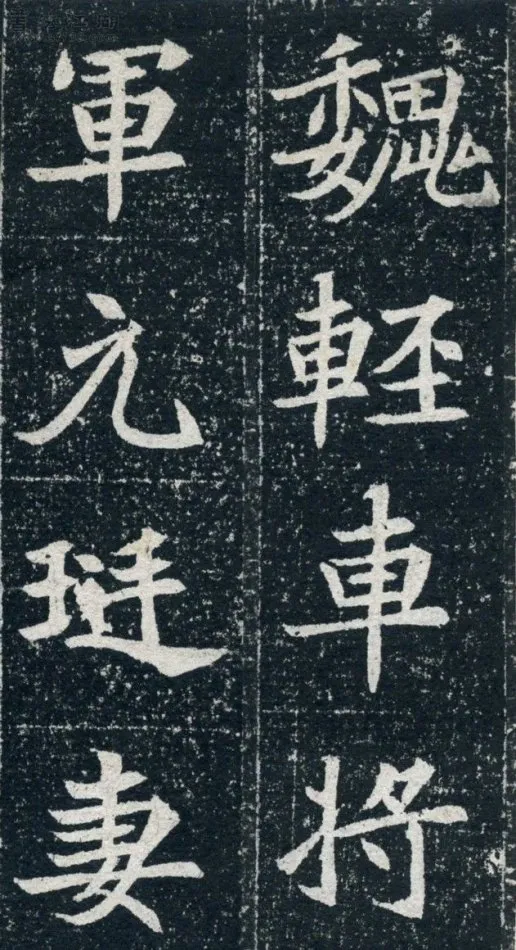 魏輕車将
軍元珽妻